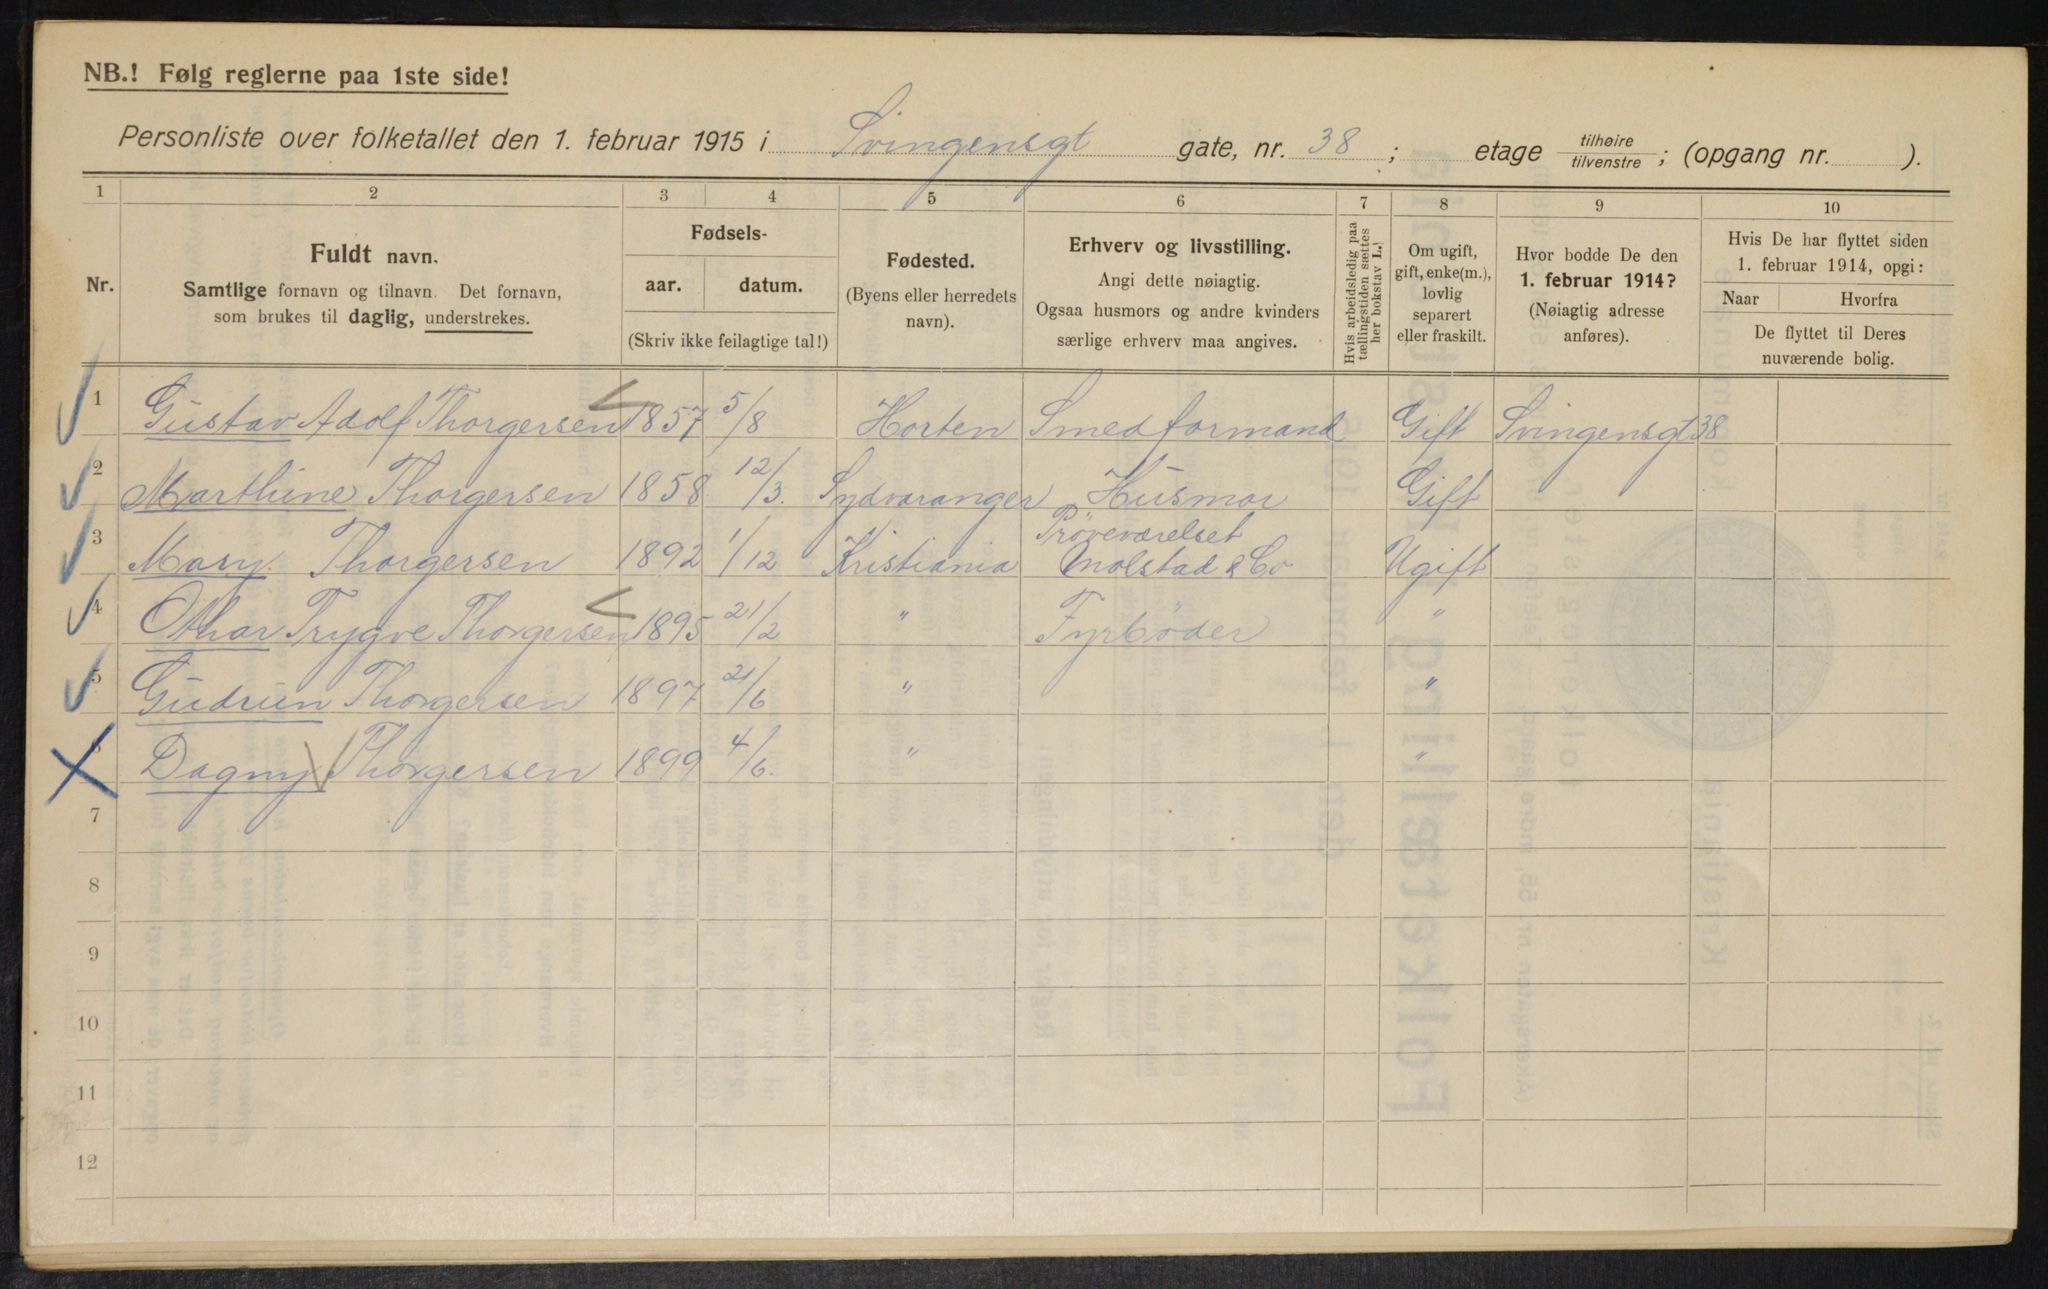 NB.! Følg reglerne paa 1ste side!
Personliste over folketallet den 1. februar 1915 i Svingensgt gate, nr. 38 ; etage tilhøire/tilvenstre ; (opgang nr. ).
1 2 3 4 5 6 7 8 9 10
Nr.
Fuldt navn.
Samtlige fornavn og tilnavn. Det fornavn,
som brukes til daglig, understrekes.
Fødsels-
aar. datum.
(Skriv ikke feilagtige tal!)
Fødested.
(Byens eller herredets
navn).
Erhverv og livsstilling.
Angi dette nøiagtig.
Ogsaa husmors og andre kvinders
særlige erhverv maa angives.
Hvis arbeidsledig paa
tællingstiden sættes
her bokstav L.
Om ugift,
gift, enke(m.),
lovlig
separert
eller fraskilt.
Hvor bodde De den
1. februar 1914?
(Nøiagtig adresse
anføres).
Hvis De har flyttet siden
1. februar 1914, opgi:
Naar Hvorfra
De flyttet til Deres
nuværende bolig.
1 Gustav Adolf Thorgersen 1857 5/8 Horten Smedformand Gift Svingensgt 38
2 Marthine Thorgersen 1858 12/3. Sydvaranger Husmor Gift
3 Mary. Thorgersen 1892 1/12 Kristiania Prøveværelset Molstad & Co Ugift
4 Othar Trygve Thorgersen 1895 21/2 " Fyrbøder "
5 Gudrun Thorgersen 1897 21/6 " "
6 Dagny Thorgersen 1899 4/6. " "
7
8
9
10
11
12